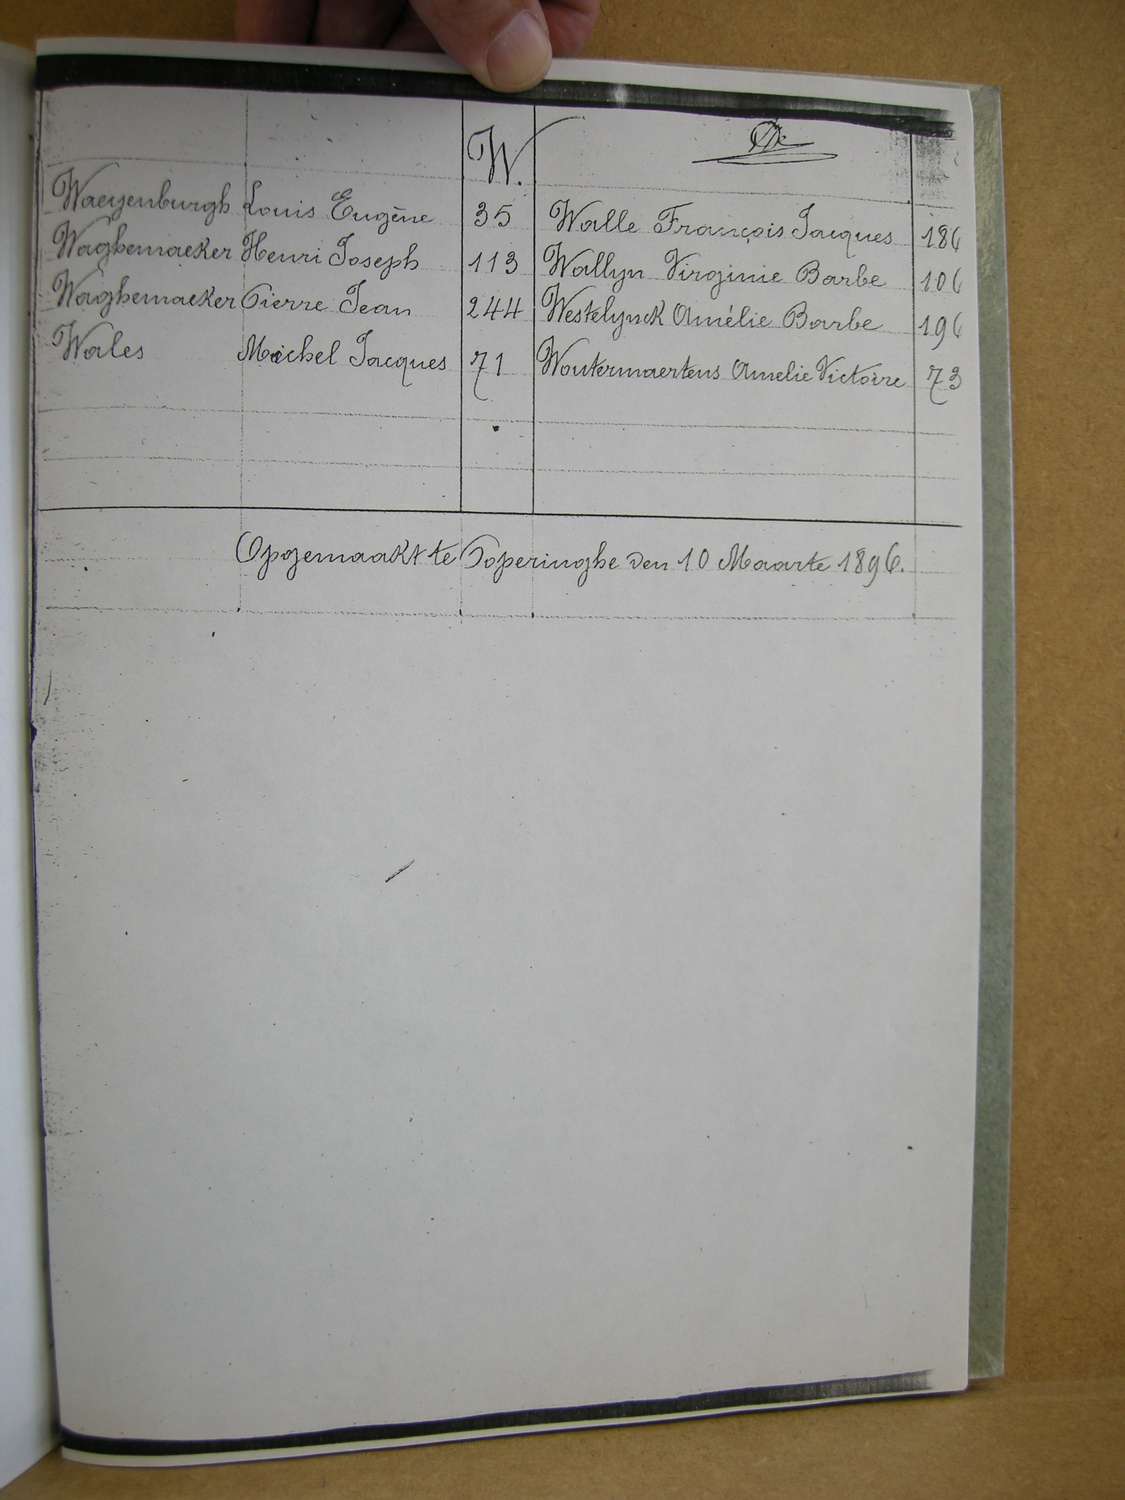 W.
Waeyenburgh Louis Eugène 35
Waghemaeker Henri Joseph 113
Waghemaeker Pierre Jean 244
Wales Michel Jacques 71
Walle François Jacques 186
Wallyn Virginie Barbe 106
Westelynck Amélie Barbe 196
Woutermaertens Amelie Victoire 73
Opgemaakt te Poperinghe den 10 Maarte 1896.